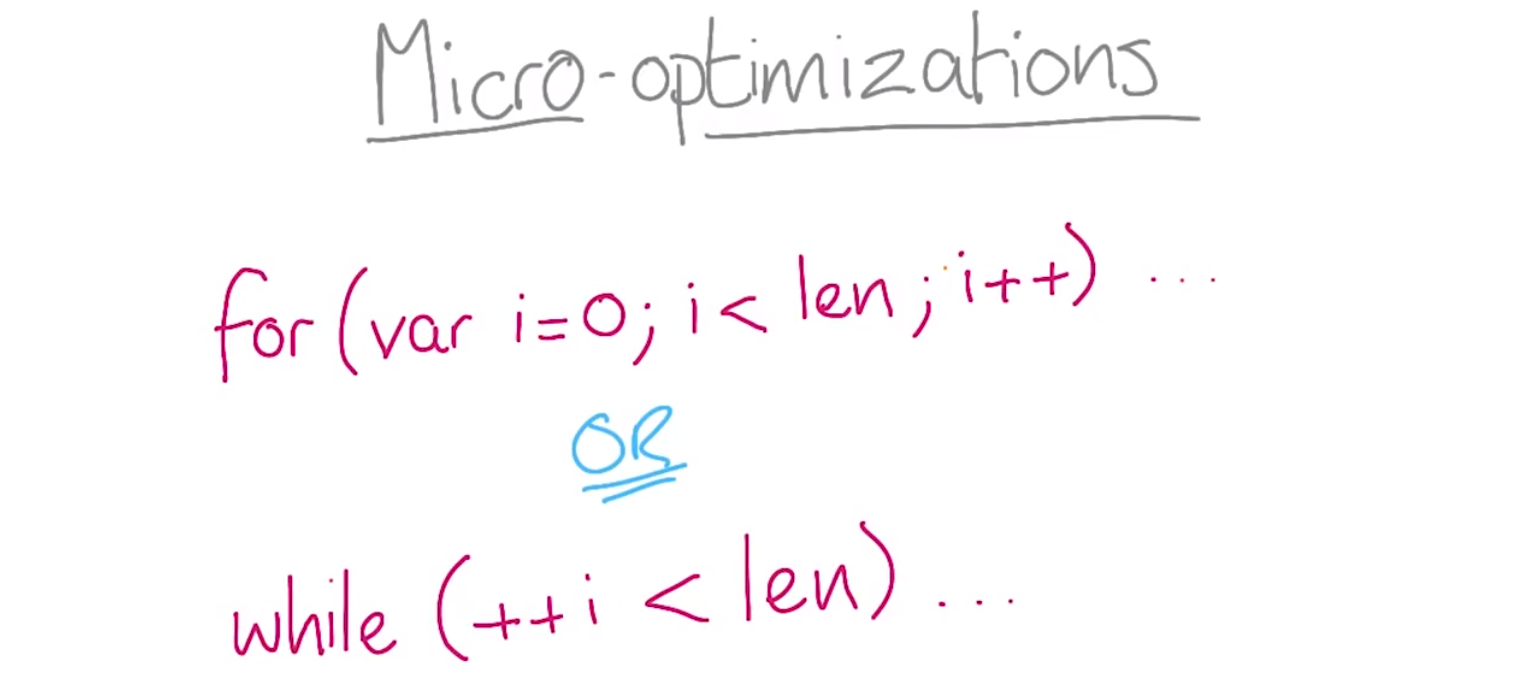 Micro-optimizations
for (var i=0; i < len; i++) ...
OR
while (++i < len) ...